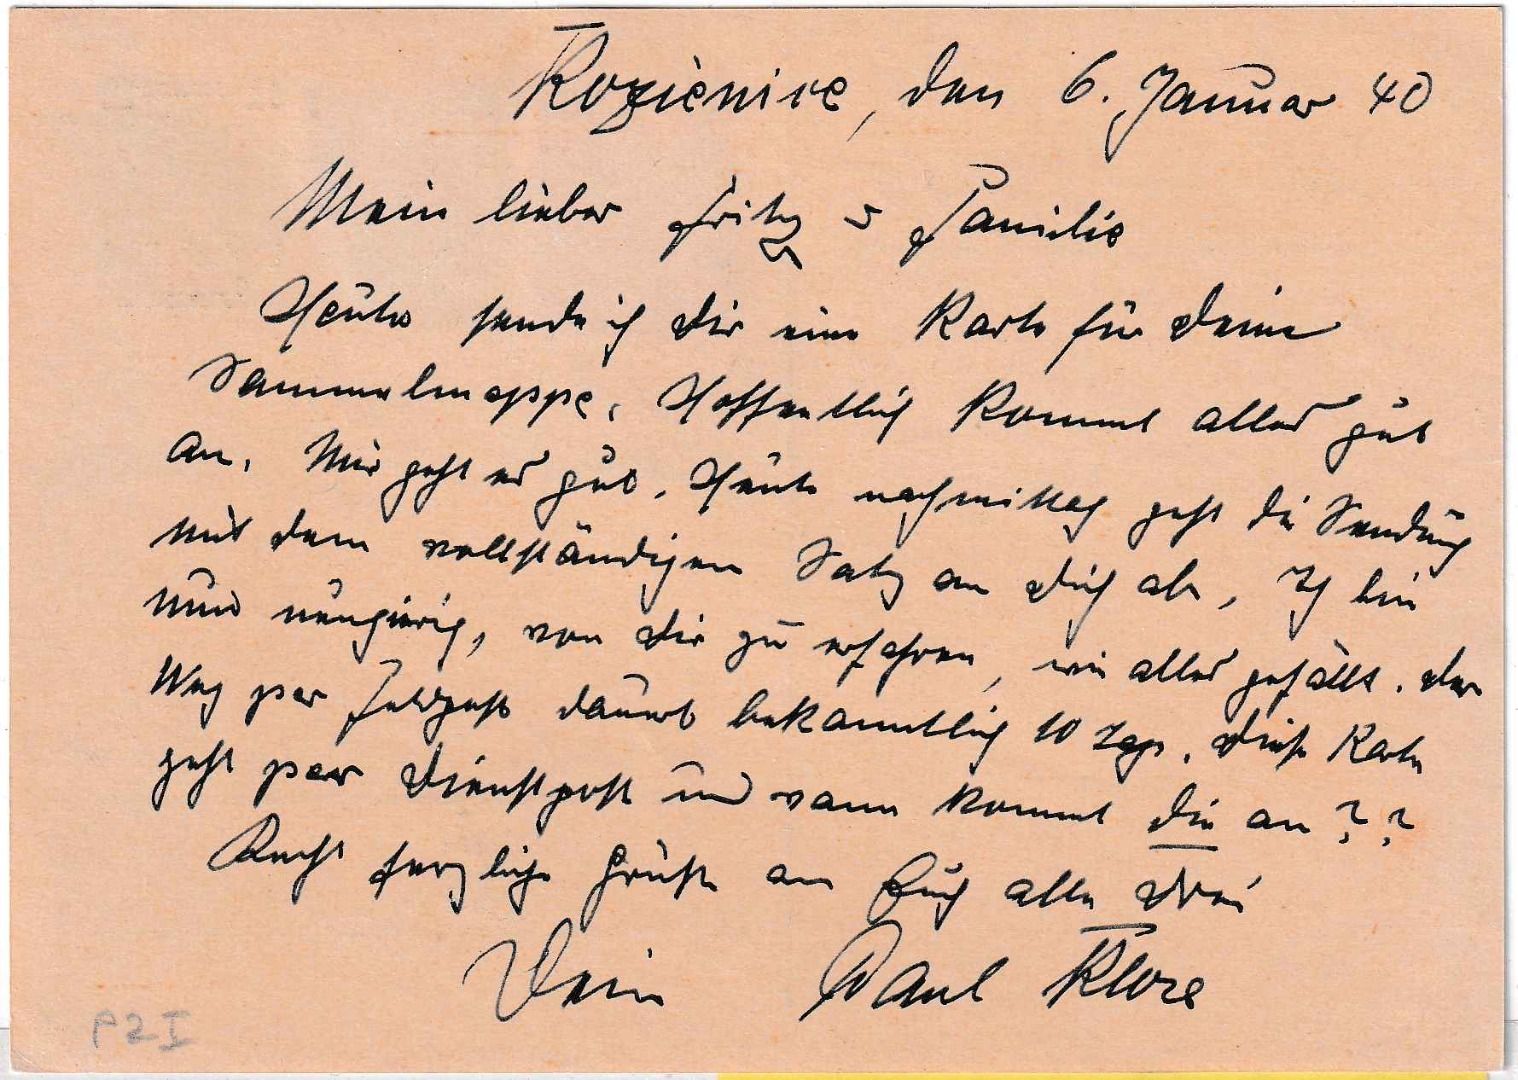 Kozienice, den 6. Januar 40
Mein lieber Fritz u Familie
Heute sende ich Dir eine Karte für Deine
Sammelmappe. Hoffentlich kommt alles gut
an. Mir geht es gut. Heute nachmittag geht die Sendung
mit dem vollständigen Satz an Dich ab, Ich bin
nun neugierig, von Dir zu erfahren, wie alles gefällt. Der
Weg per Feldpost dauert bekanntlich 10 Tage. Diese Karte
geht per Dienstpost und wann kommt die an??
Recht herzliche Grüße an Euch alle Drei
Dein Paul
P2I